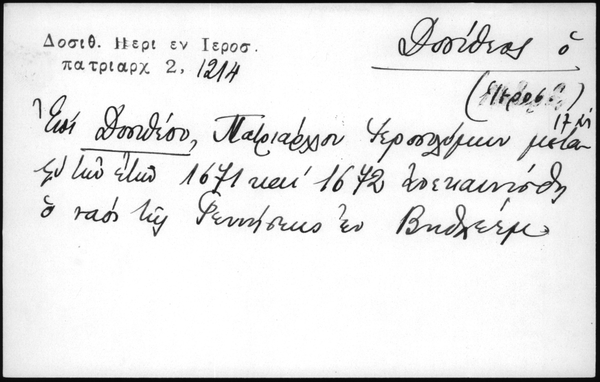 Δοσιθ. Περι εν Ιεροσ.
πατριαρχ 2, 1214
Δοσίθεος ὁ
17 αἰ
Ἐπὶ Δοσιθέου, Πατριάρχου Ἱεροσολύμων μετα-
ξὺ τῶν ἐτῶν 1671 καὶ 1672 ἀνεκαινίσθη
ὁ ναὸς τῆς Γεννήσεως ἐν Βηθλεέμ.